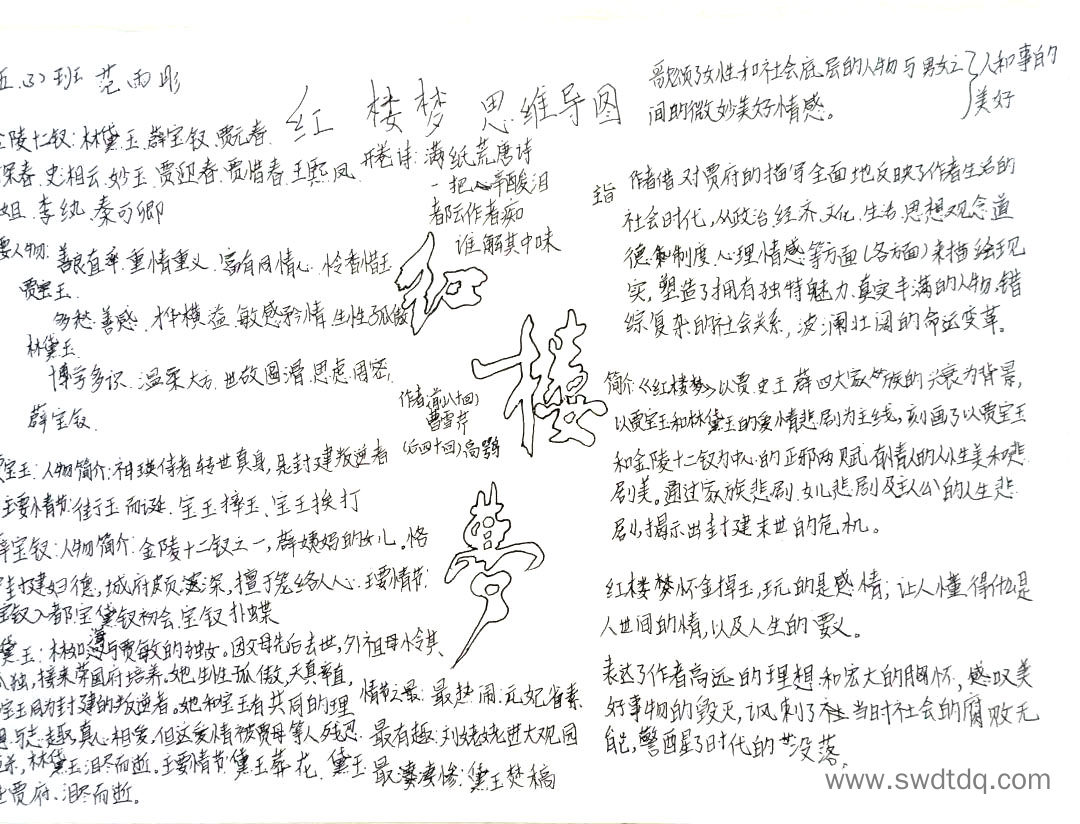 五.(3)班 范雨彤
红楼梦思维导图
金陵十二钗:林黛玉、薛宝钗、贾元春、
探春、史相云、妙玉、贾迎春、贾惜春、王熙凤、
姐、李纨、秦可卿
要人物:善良直率、重情重义、富有同情心、怜香惜玉
贾宝玉
多愁善感、才华横溢、敏感矜情、生性孤傲
林黛玉
博学多识、温柔大方、世故圆滑、思虑周密、
薛宝钗
贾宝玉:人物简介:神瑛侍者转世真身,是封建叛逆者
主要情节:衔玉而诞、宝玉摔玉、宝玉挨打
薛宝钗:人物简介:金陵十二钗之一,薛姨妈的女儿。恪
守封建妇德,城府颇深,擅于笼络人心。主要情节:
宝钗入都、宝黛钗初会、宝钗扑蝶
黛玉:林如海与贾敏的独女。因父母先后去世,外祖母怜其
孤独,接来荣国府培养。她生性孤傲、天真率直,
宝玉同为封建的叛逆者。她和宝玉有共同的理
想与志趣,真心相爱,但这爱情被贾母等人残忍
林黛玉泪尽而逝。主要情节:黛玉葬花、黛玉
进贾府、泪尽而逝。
开卷诗:满纸荒唐诗
一把辛酸泪
都云作者痴
谁解其中味
红
楼
梦
作者(前八十回)
曹雪芹
(后四十回)高鹗
情节之最:最热闹:元妃省亲
最有趣:刘姥姥进大观园
最凄凄惨:黛玉焚稿
歌颂了女性和社会底层的人物与男女之
间的微妙美好情感。
人和事的
美好
主旨
作者借对贾府的描写全面地反映了作者生活的
社会时代,从政治、经济、文化、生活、思想观念、道
德、制度、心理情感等方面(各方面)来描绘现
实,塑造了拥有独特魅力、真实丰满的人物、错
综复杂的社会关系,波澜壮阔的命运变革。
简介:《红楼梦》以贾史王薛四大家族的兴衰为背景,
以贾宝玉和林黛玉的爱情悲剧为主线,刻画了以贾宝玉
和金陵十二钗为中心的正邪两赋有情人的人生美和悲
剧美。通过家族悲剧、女儿悲剧及主人公的人生悲
剧,揭示出封建末世的危机。
红楼梦怀金掉玉,玩的是感情;让人懂得他是
人世间的情,以及人生的要义。
表达了作者高远的理想和宏大的胸怀,感叹美
好事物的毁灭,讽刺了当时社会的腐败无
能,警醒了时代的没落。
www.swdtdq.com